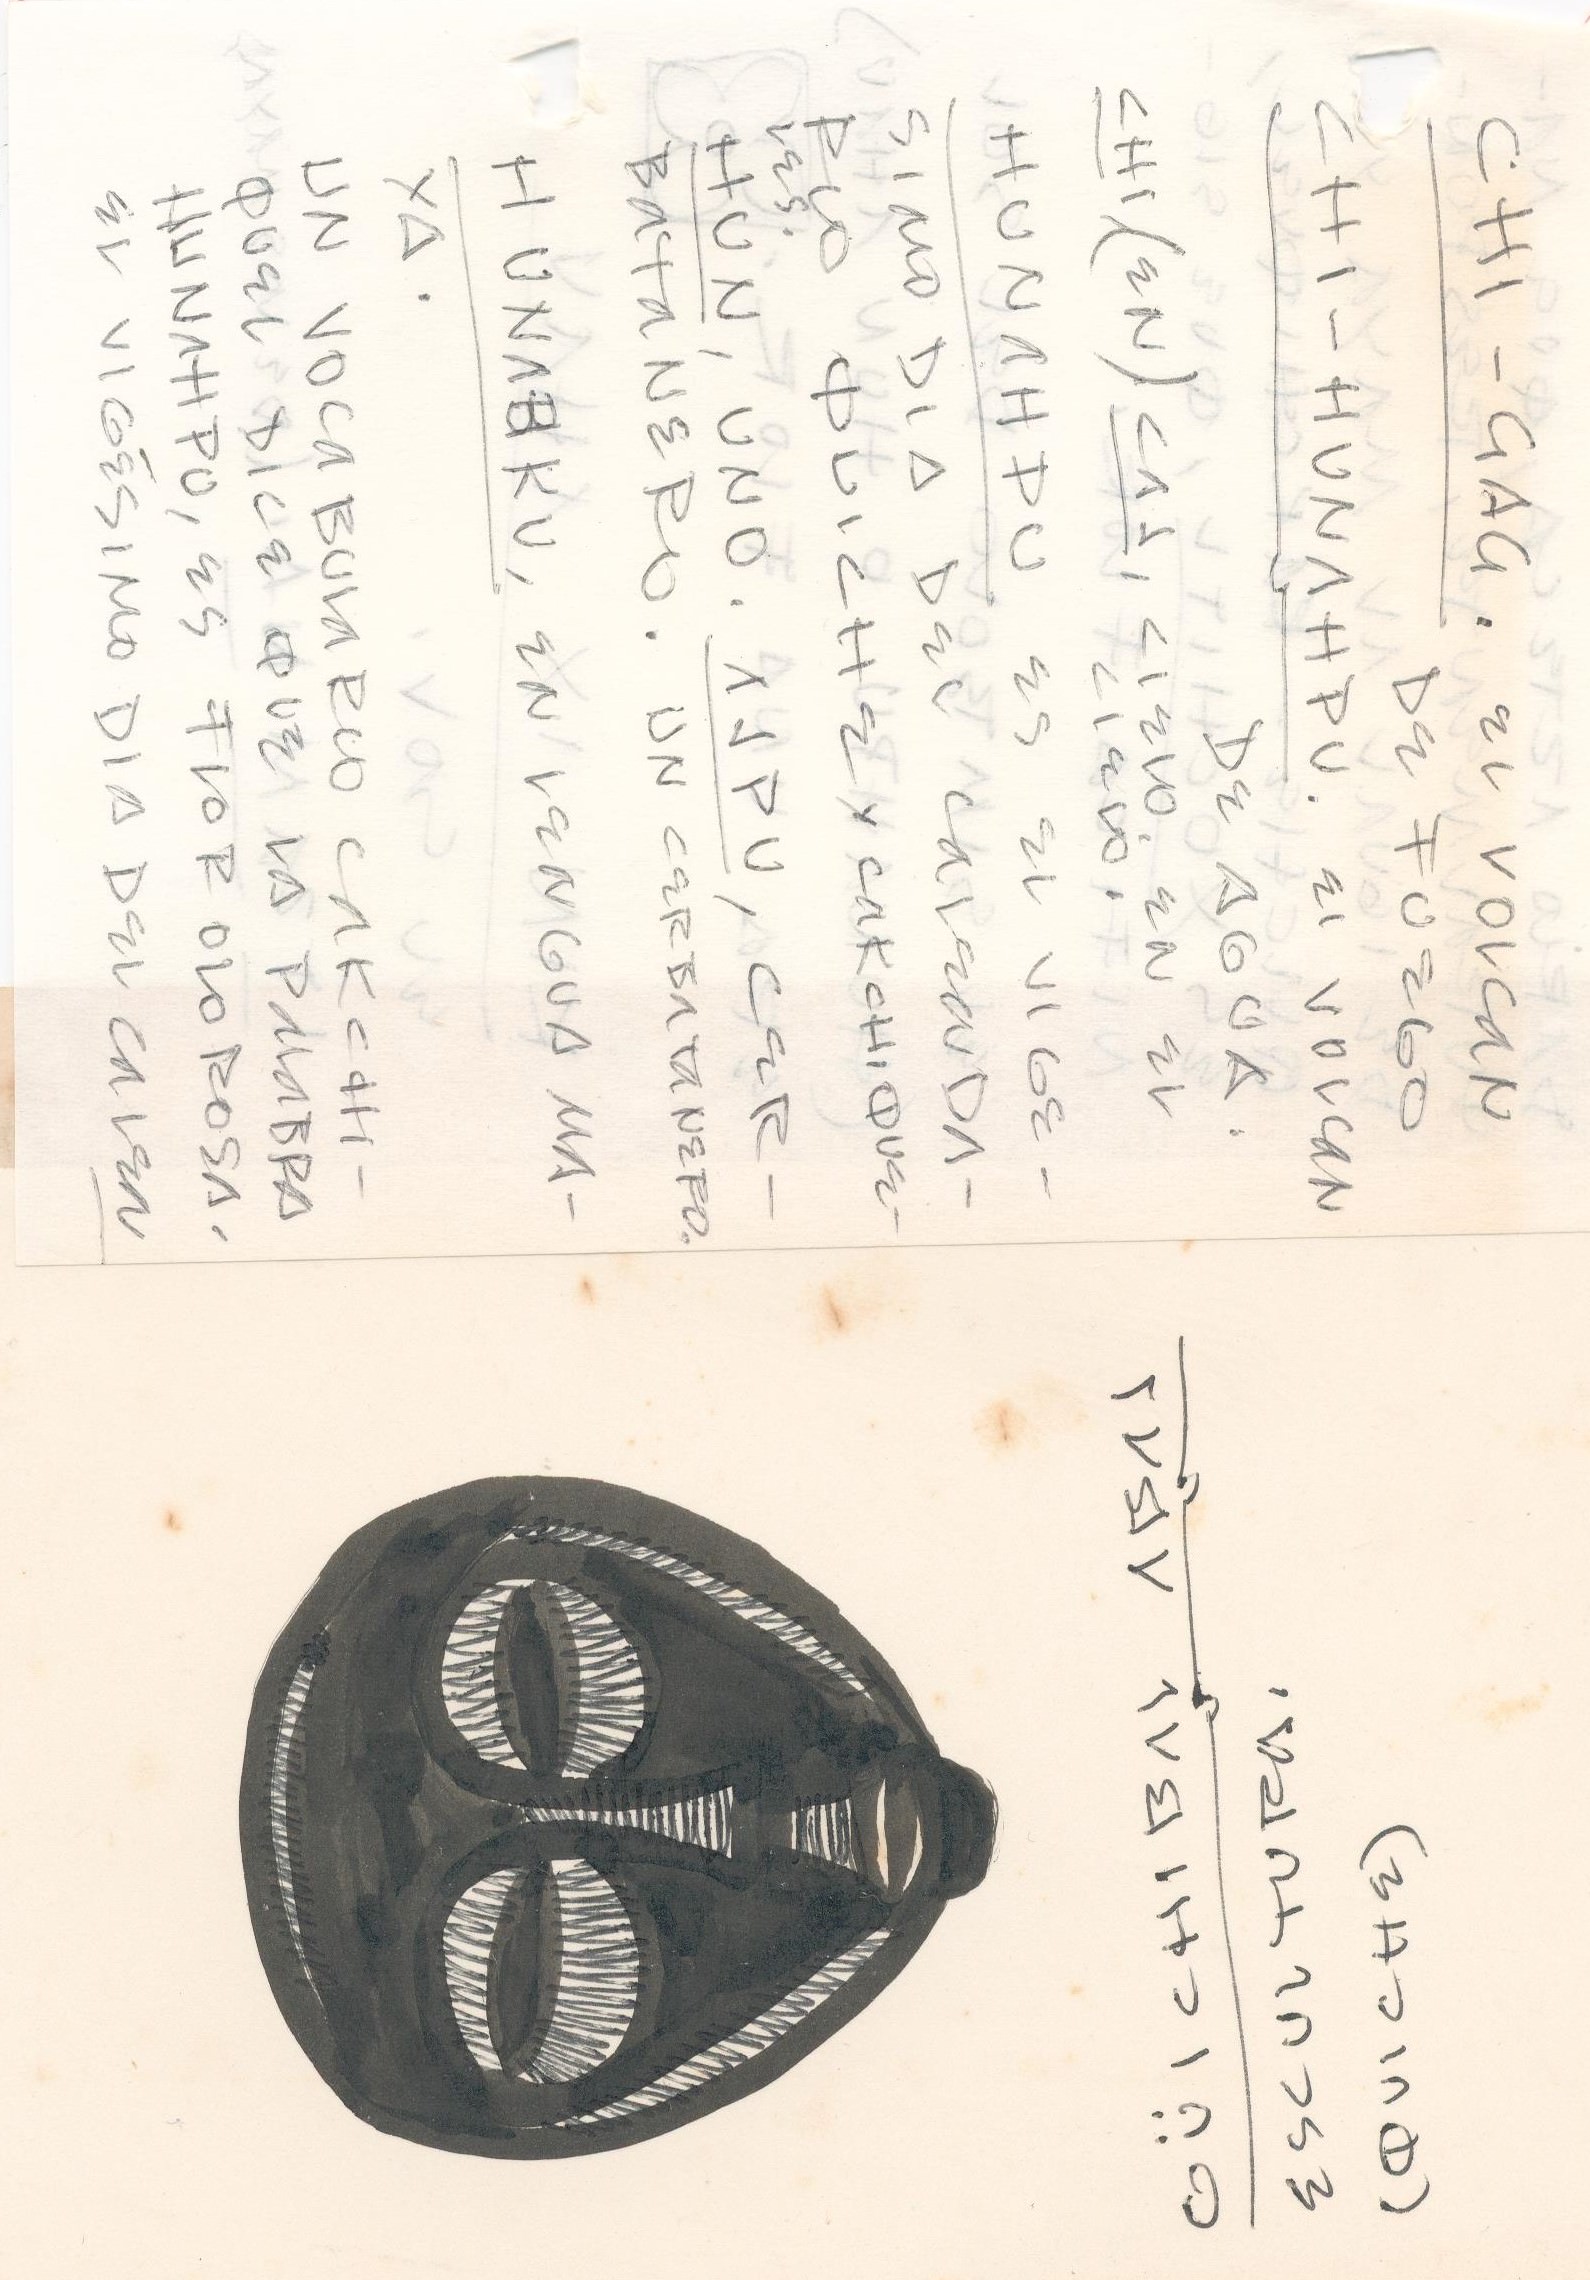 CHI-GAG. EL VOLCAN
DE FUEGO
CHI-HUNAHPU. EL VOLCAN
DE AGUA.
CHI(EN) CAJ, CIELO. EN EL
CIELO.
HUNAHPU ES EL VIGE-
SIMO DIA DEL CALENDA-
RIO QUICHE Y CAKCHIQUE-
LES.
HUN, UNO. XJPU, CER-
BATANERO. UN CERBATANERO.
HUNABKU, EN LENGUA MA-
YA.
UN VOCABULARIO CAKCH-
QUEL DICE QUE LA PALABRA
HUNAHPU, ES FLOR OLOROSA.
EL VIGÉSIMO DIA DEL CALEN
QÜICHIBAL
ESCULTURA.
(QUICHE)